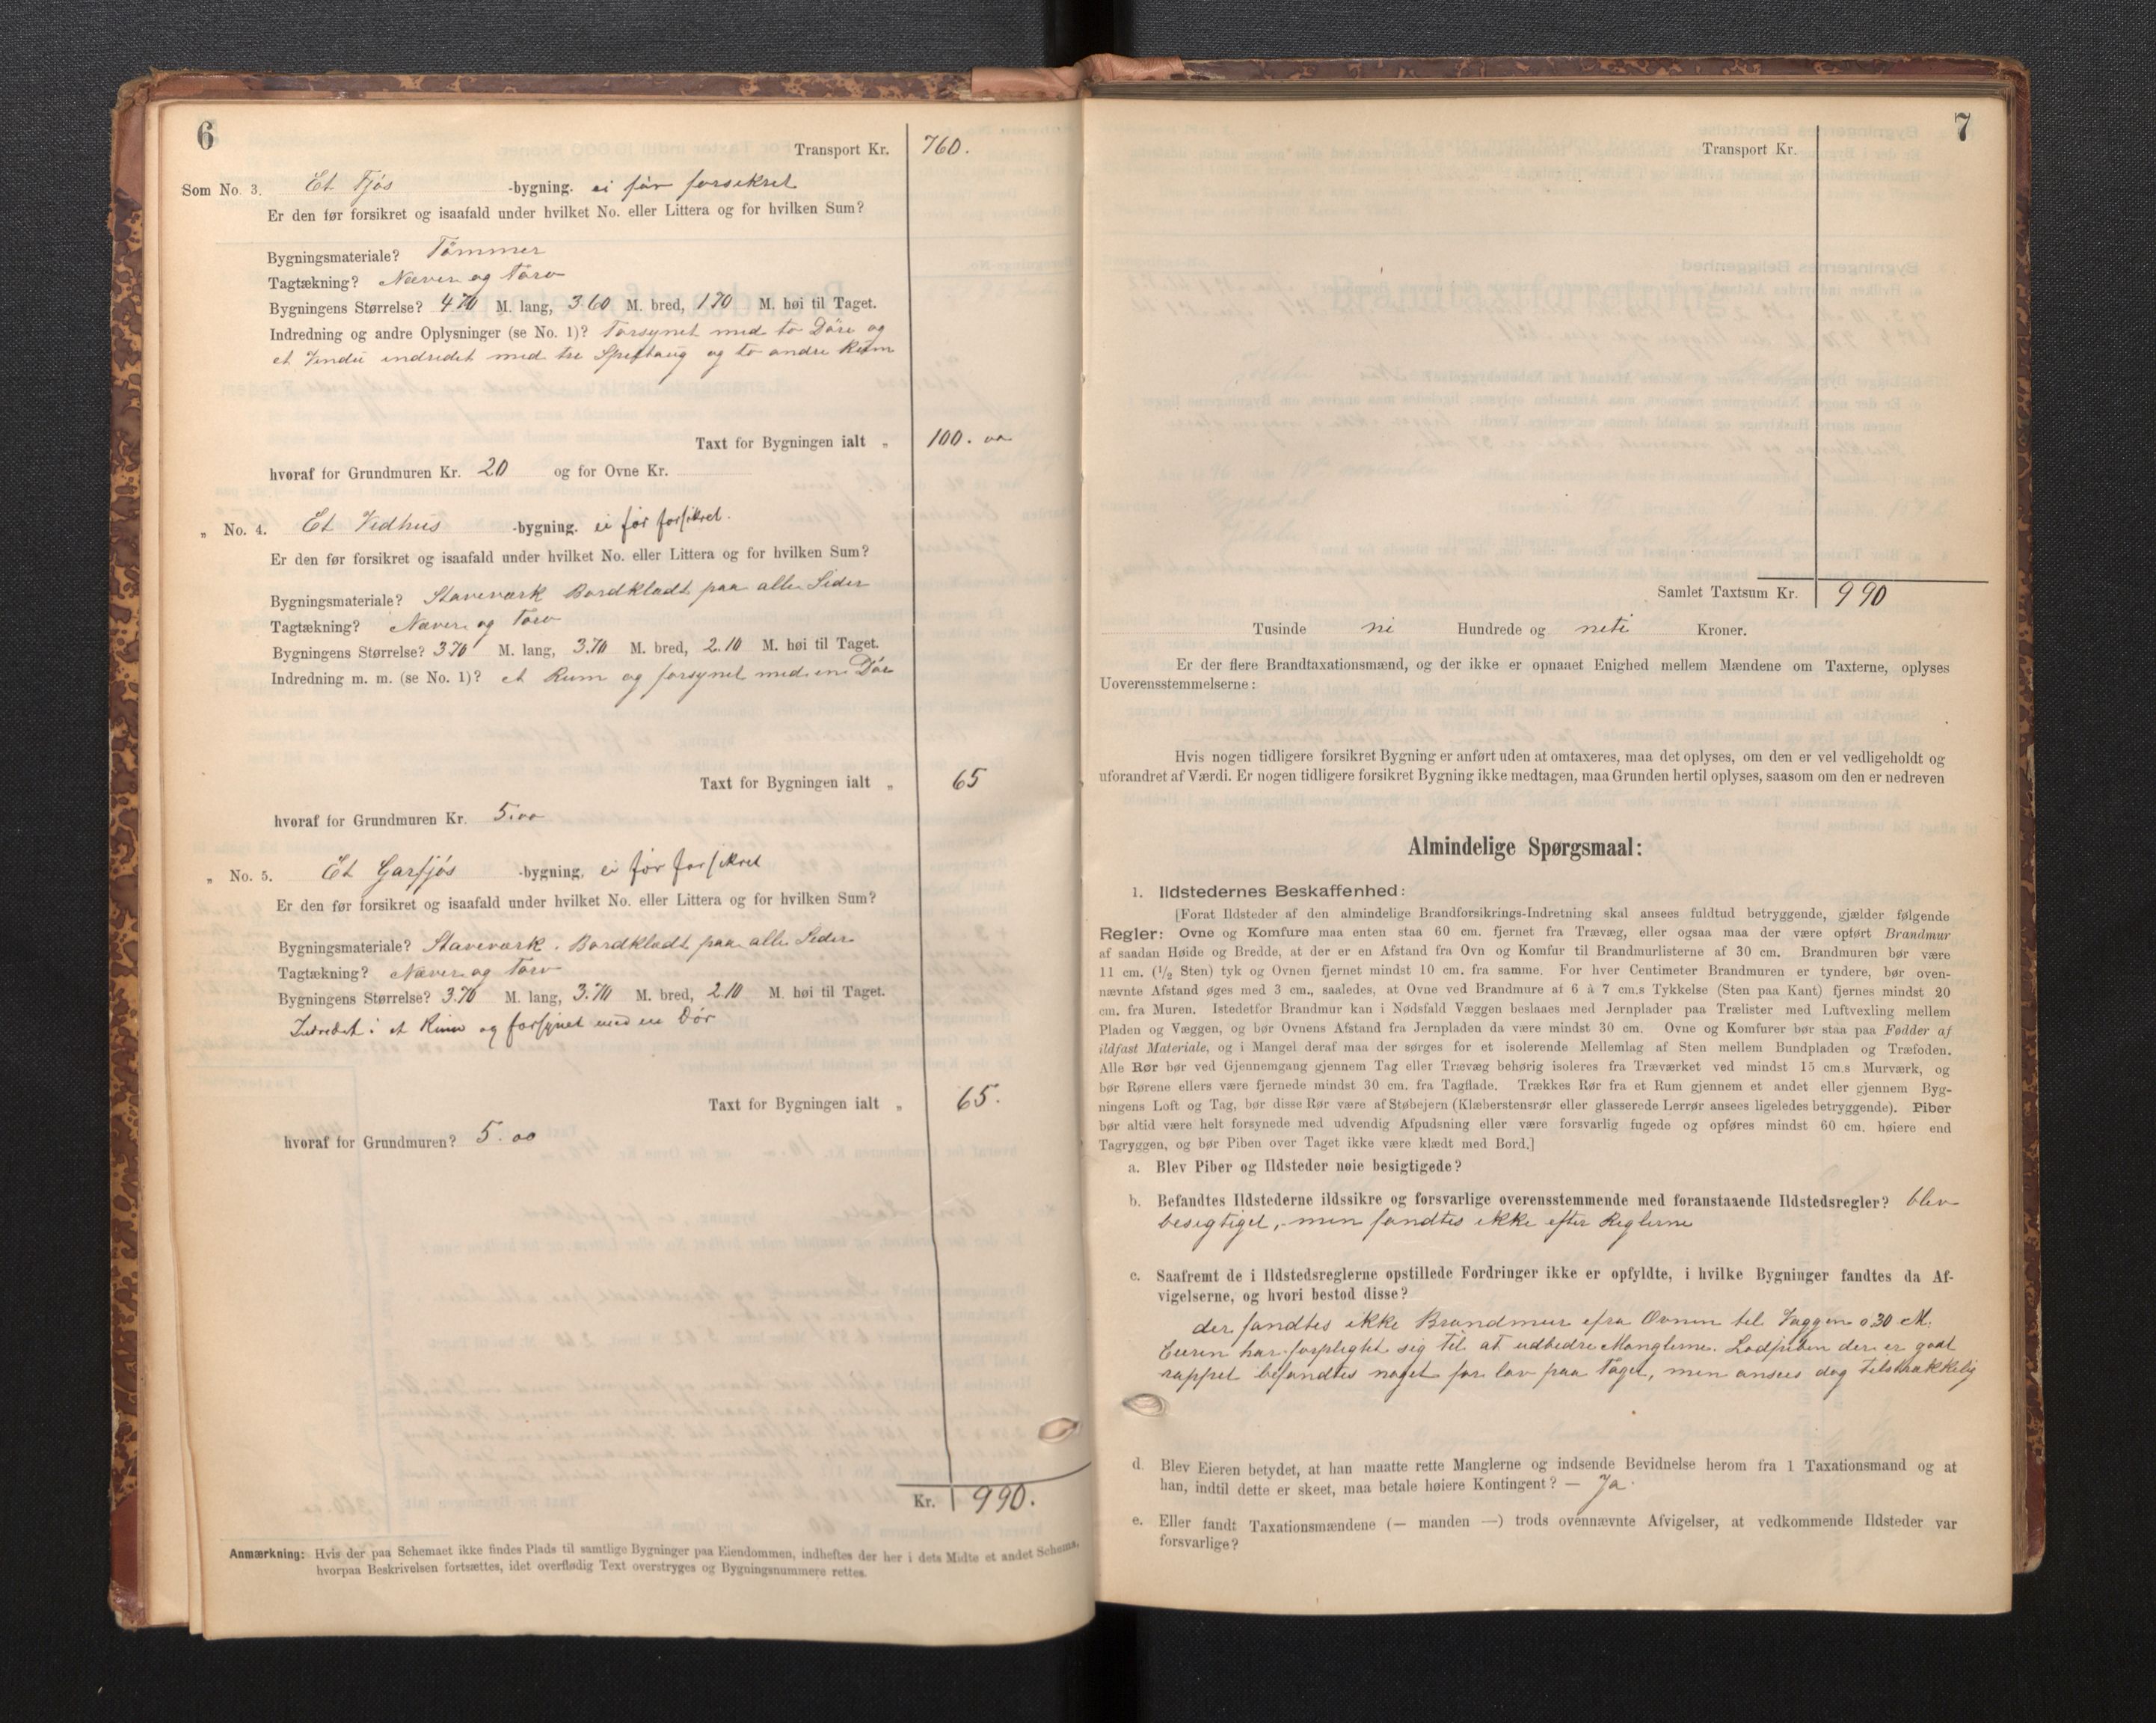 6
Transport Kr. 760.
Som No. 3. Et Fjøs -bygning. ei før forsikret
Er den før forsikret og isaafald under hvilket No. eller Littera og for hvilken Sum?
Bygningsmateriale? Tømmer
Tagtækning? Næver og Torv
Bygningens Størrelse? 4.70 M. lang, 3.60 M. bred, 1.70 M. høi til Taget.
Indredning og andre Oplysninger (se No. 1)? Forsynet med to Døre og
et Vindu indredet med tre og to andre Rum
Taxt for Bygningen ialt „ 100. oo
hvoraf for Grundmuren Kr. 20 og for Ovne Kr.
„ No. 4. Et Vedhus -bygning. ei før forsikret.
Er den før forsikret og isaafald under hvilket No. eller Littera og for hvilken Sum?
Bygningsmateriale? Staveværk Bordklædt paa alle Sider
Tagtækning? Næver og Torv
Bygningens Størrelse? 3.70 M. lang, 3.70 M. bred, 2.10 M. høi til Taget.
Indredning m. m. (se No. 1)? et Rum og forsynet med en Dør
Taxt for Bygningen ialt „ 65
hvoraf for Grundmuren Kr. 5.oo
„ No. 5. Et Garfjøs -bygning. ei før forsikret
Er den før forsikret og isaafald under hvilket No. eller Littera og for hvilken Sum?
Bygningsmateriale? Staveværk. Bordklædt paa alle Sider
Tagtækning? Næver og Torv
Bygningens Størrelse? 3.70 M. lang, 3.70 M. bred, 2.10 M. høi til Taget.
Indredet i et Rum og forsynet med en Dør
Taxt for Bygningen ialt „ 65.
hvoraf for Grundmuren? 5.oo
Kr. 990.
Anmærkning: Hvis der paa Schemaet ikke findes Plads til samtlige Bygninger paa Eiendommen, indheftes der her i dets Midte et andet Schema,
hvorpaa Beskrivelsen fortsættes, idet overflødig Text overstryges og Bygningsnummere rettes.
7
Transport Kr.
Samlet Taxtsum Kr. 990
Tusinde ni Hundrede og neti Kroner.
Er der flere Brandtaxationsmænd, og der ikke er opnaaet Enighed mellem Mændene om Taxterne, oplyses
Uoverensstemmelserne:
Hvis nogen tidligere forsikret Bygning er anført uden at omtaxeres, maa det oplyses, om den er vel vedligeholdt og
uforandret af Værdi. Er nogen tidligere forsikret Bygning ikke medtagen, maa Grunden hertil oplyses, saasom om den er nedreven
Almindelige Spørgsmaal:
1. Ildstedernes Beskaffenhed:
[Forat Ildsteder af den almindelige Brandforsikrings-Indretning skal ansees fuldtud betryggende, gjælder følgende
Regler: Ovne og Komfure maa enten staa 60 cm. fjernet fra Trævæg, eller ogsaa maa der være opført Brandmur
af saadan Høide og Bredde, at der er en Afstand fra Ovn og Komfur til Brandmurlisterne af 30 cm. Brandmuren bør være
11 cm. (1/2 Sten) tyk og Ovnen fjernet mindst 10 cm. fra samme. For hver Centimeter Brandmuren er tyndere, bør oven-
nævnte Afstand øges med 3 cm., saaledes, at Ovne ved Brandmure af 6 à 7 cm.s Tykkelse (Sten paa Kant) fjernes mindst 20
cm. fra Muren. Istedetfor Brandmur kan i Nødsfald Væggen beslaaes med Jernplader paa Trælister med Luftvexling mellem
Pladen og Væggen, og bør Ovnens Afstand fra Jernpladen da være mindst 30 cm. Ovne og Komfurer bør staa paa Fødder af
ildfast Materiale, og i Mangel deraf maa der sørges for et isolerende Mellemlag af Sten mellem Bundpladen og Træfoden.
Alle Rør bør ved Gjennemgang gjennem Tag eller Trævæg behørig isoleres fra Træværket ved mindst 15 cm.s Murværk, og
bør Rørene ellers være fjernede mindst 30 cm. fra Tagflade. Trækkes Rør fra et Rum gjennem et andet eller gjennem Byg-
ningens Loft og Tag, bør disse Rør være af Støbejern (Klæberstensrør eller glasserede Lerrør ansees ligeledes betryggende). Piber
bør altid være helt forsynede med udvendig Afpudsning eller være forsvarlig fugede og opføres mindst 60 cm. høiere end
Tagryggen, og bør Piben over Taget ikke være klædt med Bord.]
a. Blev Piber og Ildsteder nøie besigtigede?
b. Befandtes Ildstederne ildssikre og forsvarlige overensstemmende med foranstaaende Ildstedsregler? blev
besigtiget, men fandtes ikke efter Reglerne
c. Saafremt de i Ildstedsreglerne opstillede Fordringer ikke er opfyldte, i hvilke Bygninger fandtes da Af-
vigelserne, og hvori bestod disse?
der fandtes ikke Brandmur fra Ovnen til Væggen 0.30 M.
Eieren har forpligtet sig til at udbedre Manglerne. Lodpiben der er godt
rappet befandtes noget for lav paa taget, men ansees dog tilstrækkelig
d. Blev Eieren betydet, at han maatte rette Manglerne og indsende Bevidnelse herom fra 1 Taxationsmand og at
han, indtil dette er skeet, maa betale høiere Kontingent? — Ja.
e. Eller fandt Taxationsmændene (— manden —) trods ovennævnte Afvigelser, at vedkommende Ildsteder var
forsvarlige?